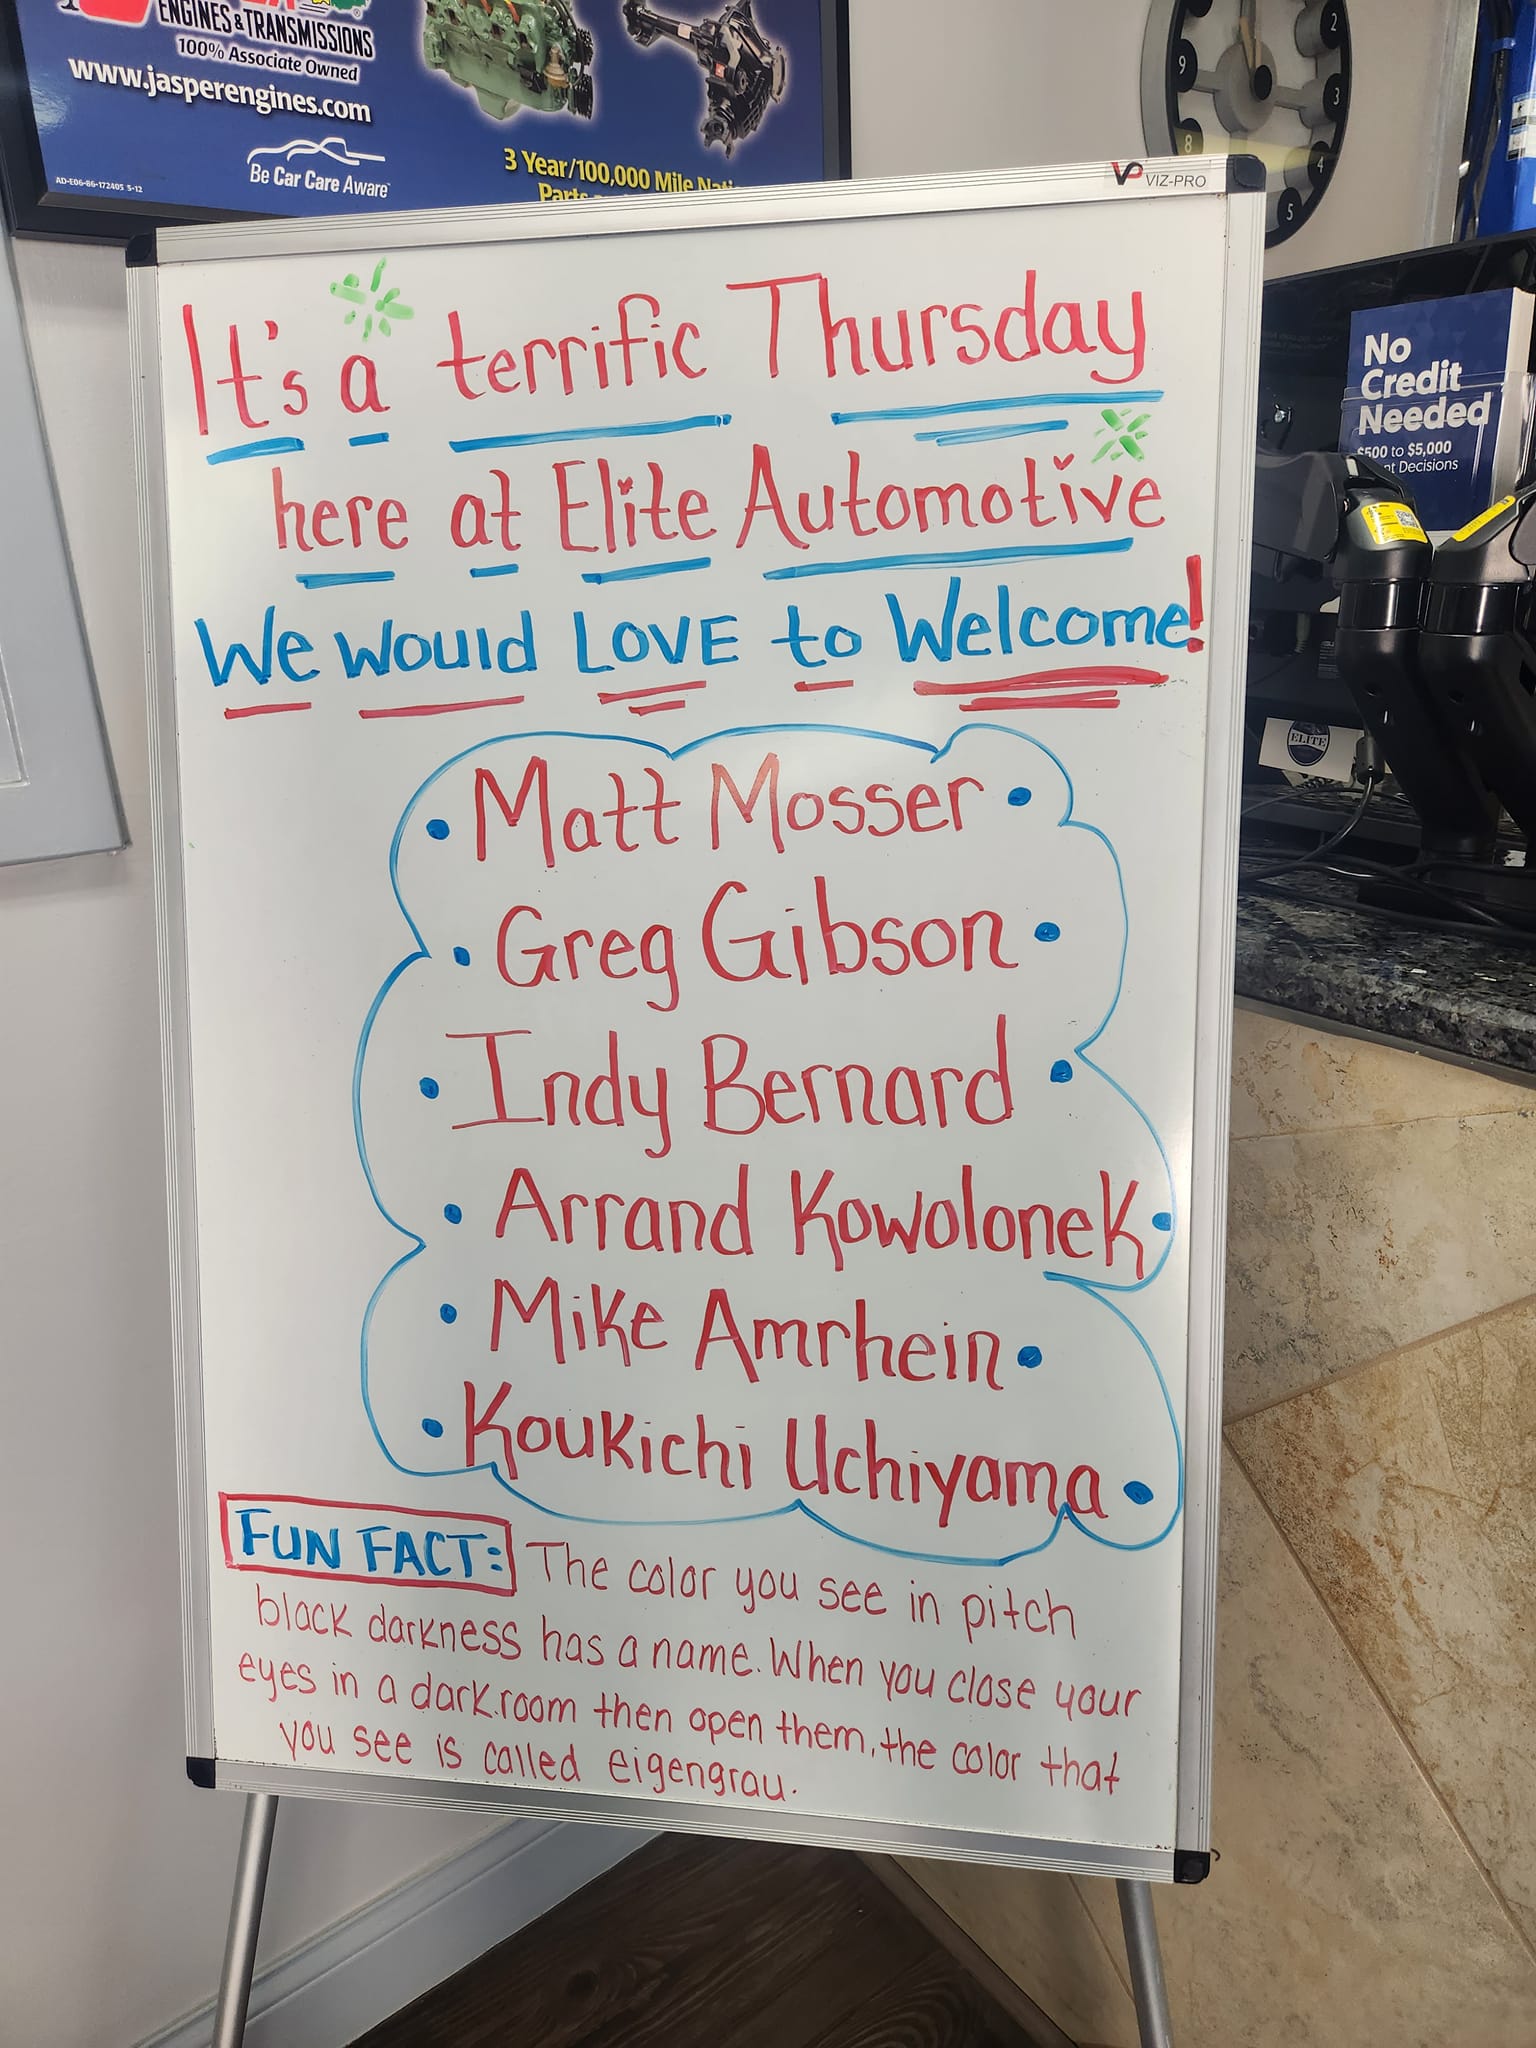 ENGINES & TRANSMISSIONS
100% Associate Owned
www.jasperengines.com
Be Car Care Aware
AD-E06-86-172405 5-12
3 Year/100,000 Mile
Parts
9
8
2
3
4
5
VP VIZ-PRO
It's a terrific Thursday
here at Elite Automotive
We would LOVE to Welcome!
Matt Mosser
Greg Gibson
Indy Bernard
Arrand Kowolonek
Mike Amrhein
Koukichi Uchiyama
FUN FACT: The color you see in pitch
black darkness has a name. When you close your
eyes in a dark.room then open them, the color that
you see is called eigengrau.
No
Credit
Needed
$500 to $5,000
Decisions
ELITE